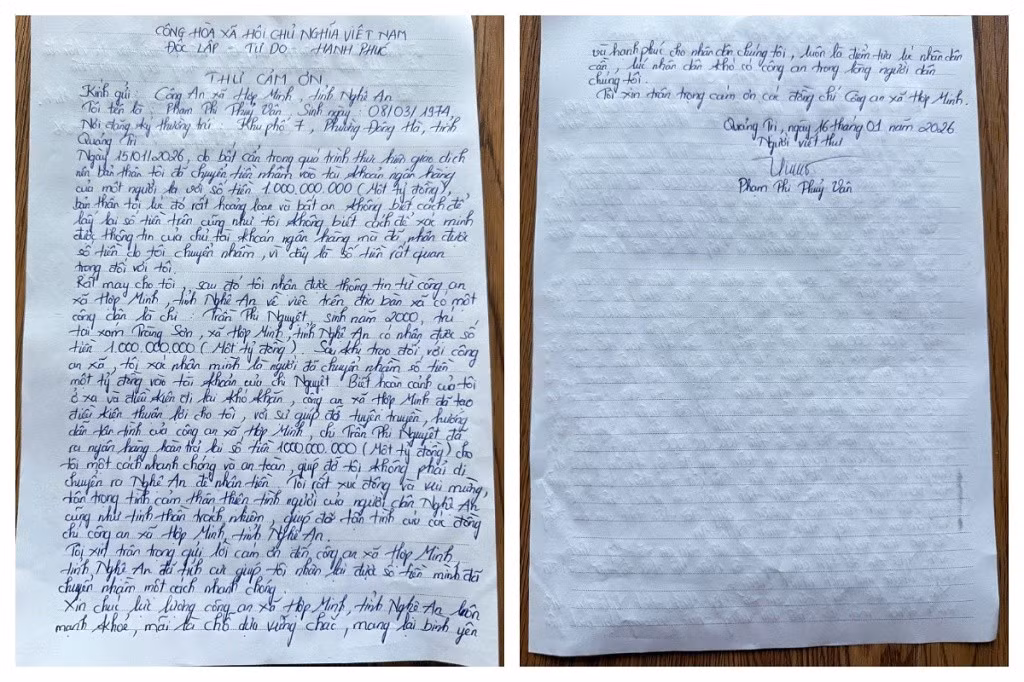 CỘNG HÒA XÃ HỘI CHỦ NGHĨA VIỆT NAM
ĐỘC LẬP - TỰ DO - HẠNH PHÚC
THƯ CẢM ƠN
Kính gửi: Công An xã Hợp Minh, tỉnh Nghệ An
Tôi tên là: Phạm Phi Thuý Vân Sinh ngày: 08/03/1974
Nơi đăng ký thường trú: Khu phố 7, Phường Đông Hà, tỉnh
Quảng Trị
Ngày 15/01/2026, do bất cẩn trong quá trình thực hiện giao dịch
nên bản thân tôi đã chuyển tiền nhầm vào tài khoản ngân hàng
của một người lạ với số tiền 1.000.000.000 (Một tỷ đồng),
bản thân tôi lúc đó rất hoảng loạn và bất an không biết cách để
lấy lại số tiền trên cũng như tôi không biết cách để xác minh
được thông tin của chủ tài khoản ngân hàng mà đã nhận được
số tiền do tôi chuyển nhầm, vì đây là số tiền rất quan
trọng đối với tôi.
Rất may cho tôi, sau đó tôi nhận được thông tin từ công an
xã Hợp Minh, tỉnh Nghệ An về việc trên địa bàn xã có một
công dân là chị: Trần Thị Nguyệt, sinh năm 2000, trú
tại xóm Tràng Sơn, xã Hợp Minh, tỉnh Nghệ An có nhận được số
tiền 1.000.000.000 (Một tỷ đồng). Sau khi trao đổi với công
an xã, tôi xác nhận mình là người đã chuyển nhầm số tiền
một tỷ đồng vào tài khoản của chị Nguyệt. Biết hoàn cảnh của tôi
ở xa và điều kiện đi lại khó khăn, công an xã Hợp Minh đã tạo
điều kiện thuận lợi cho tôi, với sự giúp đỡ tuyên truyền, hướng
dẫn tận tình của công an xã Hợp Minh, chị Trần Thị Nguyệt đã
ra ngân hàng hoàn trả lại số tiền 1000.000.000 (Một tỷ đồng) cho
tôi một cách nhanh chóng và an toàn, giúp đỡ tôi không phải di
chuyển ra Nghệ An để nhận tiền. Tôi rất xúc động và vui mừng,
trân trọng tình cảm thân thiện tình người của người dân Nghệ An
cũng như tinh thần trách nhiệm, giúp đỡ tận tình của các đồng
chí công an xã Hợp Minh, tỉnh Nghệ An.
Tôi xin trân trọng gửi lời cảm ơn đến công an xã Hợp Minh,
tỉnh Nghệ An đã tích cực giúp tôi nhận lại được số tiền mình đã
chuyển nhầm một cách nhanh chóng.
Xin chúc lực lượng công an xã Hợp Minh, tỉnh Nghệ An luôn
mạnh khoẻ, mãi là chỗ dựa vững chắc, mang lại bình yên
và hạnh phúc cho nhân dân chúng tôi, luôn là điểm tựa lúc nhân dân
cần, lúc nhân dân khó có công an trong lòng người dân
chúng tôi.
Tôi xin trân trọng cảm ơn các đồng chí Công an xã Hợp Minh.
Quảng Trị, ngày 16 tháng 01 năm 2026
Người viết thư
Phạm Phi Thuý Vân